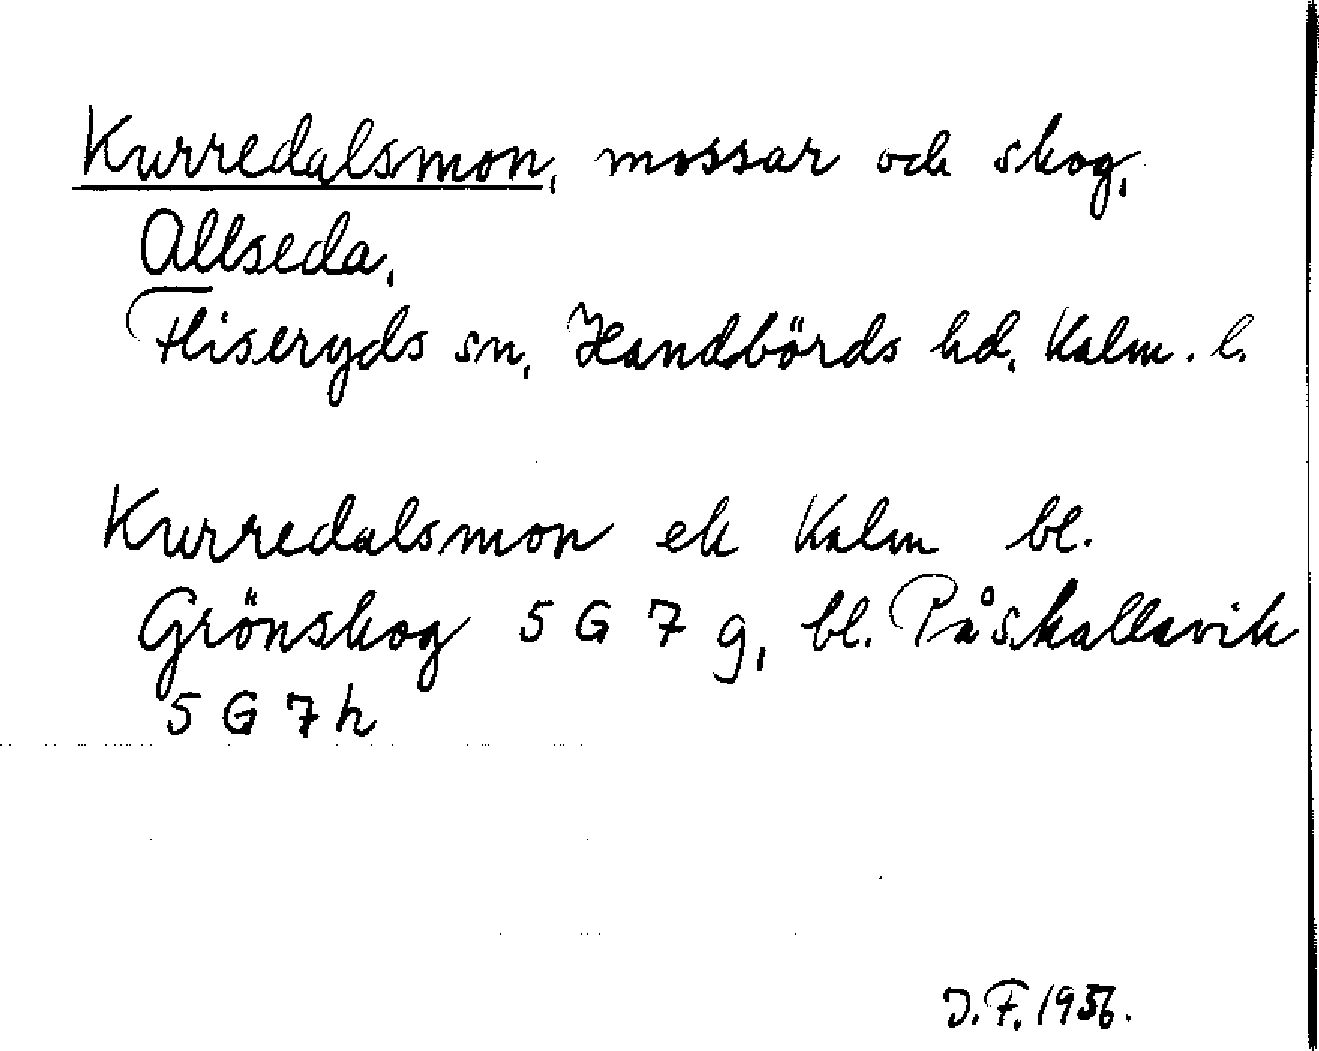 Kurredalsmon, mossar och skog,
Allseda,
Fliseryds sn, Handbörds hd, Kalm. l.
Kurredalsmon ek Kalm bl.
Grönskog 5 G 7 g, bl. Påskallavik
5 G 7 h
J. F. 1956.